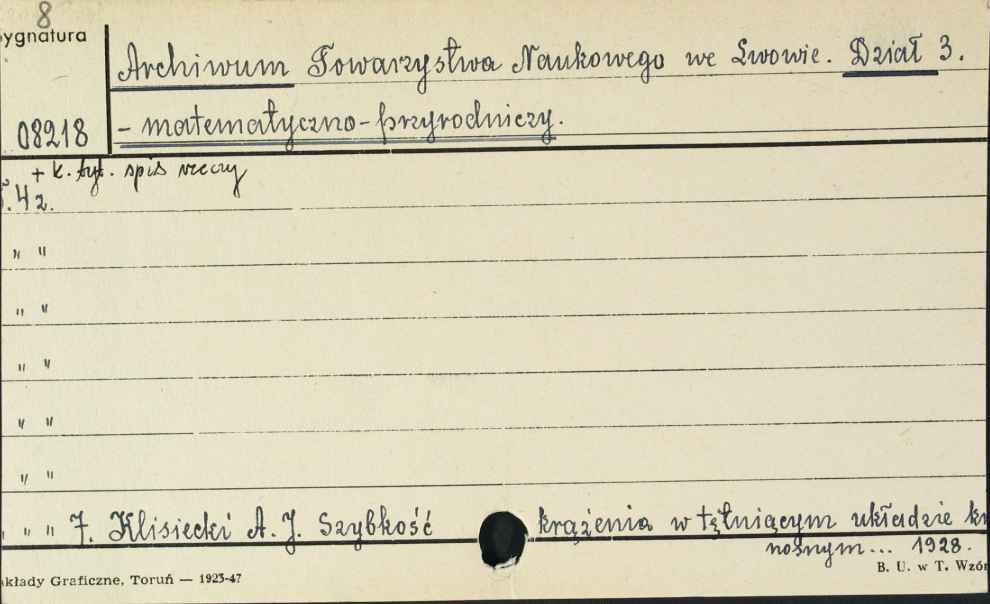 8
ygnatura
Archiwum Towarzystwa Naukowego we Lwowie. Dział 3.
08218
- matematyczno-przyrodniczy.
+ k. tyt. spis rzeczy
T. 4 z.
" "
" "
" "
" "
" "
" " 7. Klisiecki A. J. Szybkość krążenia w tętniącym układzie kr
nośnym... 1928.
kłady Graficzne, Toruń — 1923-47
B. U. w T. Wzór